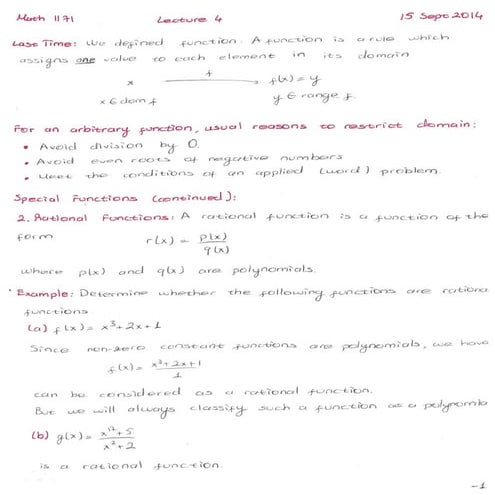 Math 1171 Lecture 4 15 Sept 2014
Last Time: We defined function. A function is a rule which
assigns one value to each element in its domain
f
x → f(x) = y
x ∈ dom f y ∈ range f.
For an arbitrary function, usual reasons to restrict domain:
• Avoid division by 0.
• Avoid even roots of negative numbers
• Meet the conditions of an applied (word) problem.
Special Functions (continued):
2. Rational Functions: A rational function is a function of the
form r(x) = p(x)/q(x)
where p(x) and q(x) are polynomials.
Example: Determine whether the following functions are rationa
functions.
(a) f(x) = x³+2x+1
Since non-zero constant functions are polynomials, we have
f(x) = x³+2x+1/1
can be considered as a rational function.
But we will always classify such a function as a polynomia
(b) g(x) = x¹²+5/x²+2
is a rational function.
-1